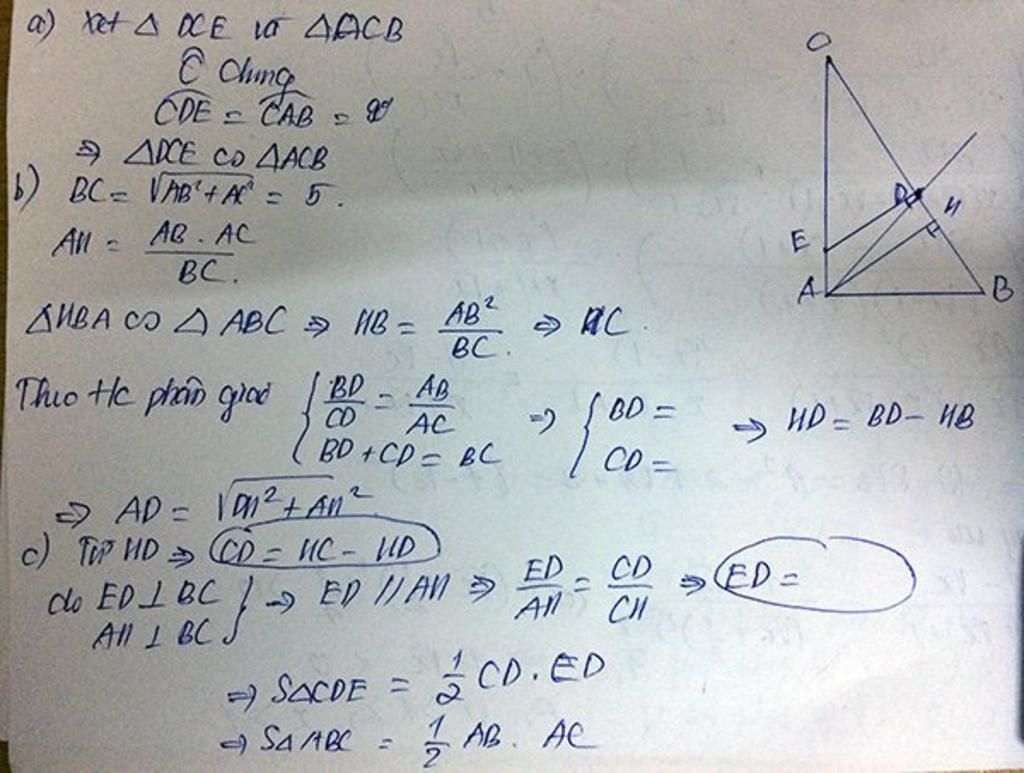 a) Xét Δ DCE và ΔACB
Ĉ Chung
CDE = CAB = 90°
⇒ ΔDCE ∽ ΔACB
b) BC = √AB² + AC² = 5.
AH = AB . AC / BC.
ΔHBA ∽ Δ ABC ⇒ HB = AB² / BC. ⇒ HC.
Theo t/c phân giác { BD/CD = AB/AC ⇒ { BD = ⇒ HD = BD - HB
BD + CD = BC CD =
⇒ AD = √DH² + AH²
c) Từ HD ⇒ CD = HC - HD
do ED ⊥ BC } ⇒ ED // AH ⇒ ED/AH = CD/CH ⇒ ED =
AH ⊥ BC
⇒ SΔCDE = 1/2 CD . ED
⇒ SΔABC = 1/2 AB . AC
C
D
H
E
A
B